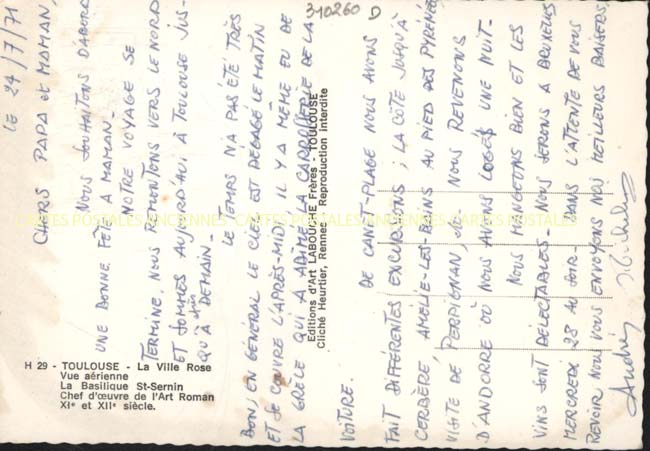 LE 24/7/71
CHERS PAPA et MAMAN,
NOUS SOUHAITONS D'ABORD
UNE BONNE FÊTE A MAMAN -
NOTRE VOYAGE SE
TERMINE, NOUS REMONTONS VERS LE NORD
ET SOMMES AUJOURD'HUI À TOULOUSE JUS-
QU'À DEMAIN -
LE TEMPS N'A PAS ÉTÉ TRÈS
BON, EN GENERAL LE CIEL EST DÉGAGÉ LE MATIN
ET SE COUVRE L'APRÈS-MIDI, IL Y A MÊME EU DE
LA GRÊLE QUI A ABÎMÉ LA CARROSSERIE DE LA
VOITURE.
DE CANET-PLAGE NOUS AVONS
FAIT DIFFÉRENTES EXCURSIONS ; LA CÔTE JUSQU'À
CERBÈRE, AMÉLIE-LES-BAINS AU PIED DES PYRÉNÉES
VISITE DE PERPIGNAN, NOUS REVENONS
D'ANDORRE OÙ NOUS AVONS LOGÉS UNE NUIT-
NOUS MANGEONS BIEN ET LES
VINS SONT DÉLECTABLES NOUS SERONS A BRUXELLES
MERCREDI 28 AU SOIR - DANS L'ATTENTE DE VOUS
REVOIR NOUS VOUS ENVOYONS NOS MEILLEURS BAISERS
Andrée
310260 D
H 29 - TOULOUSE - La Ville Rose
Vue aérienne
La Basilique St-Sernin
Chef d'œuvre de l'Art Roman
XIe et XIIe siècle.
Editions d'Art LABOUCHE Frères - TOULOUSE
Cliché Heurtier, Rennes - Reproduction interdite
CARTES POSTALES ANCIENNES CARTES POSTALES ANCIENNES CARTES POSTALES